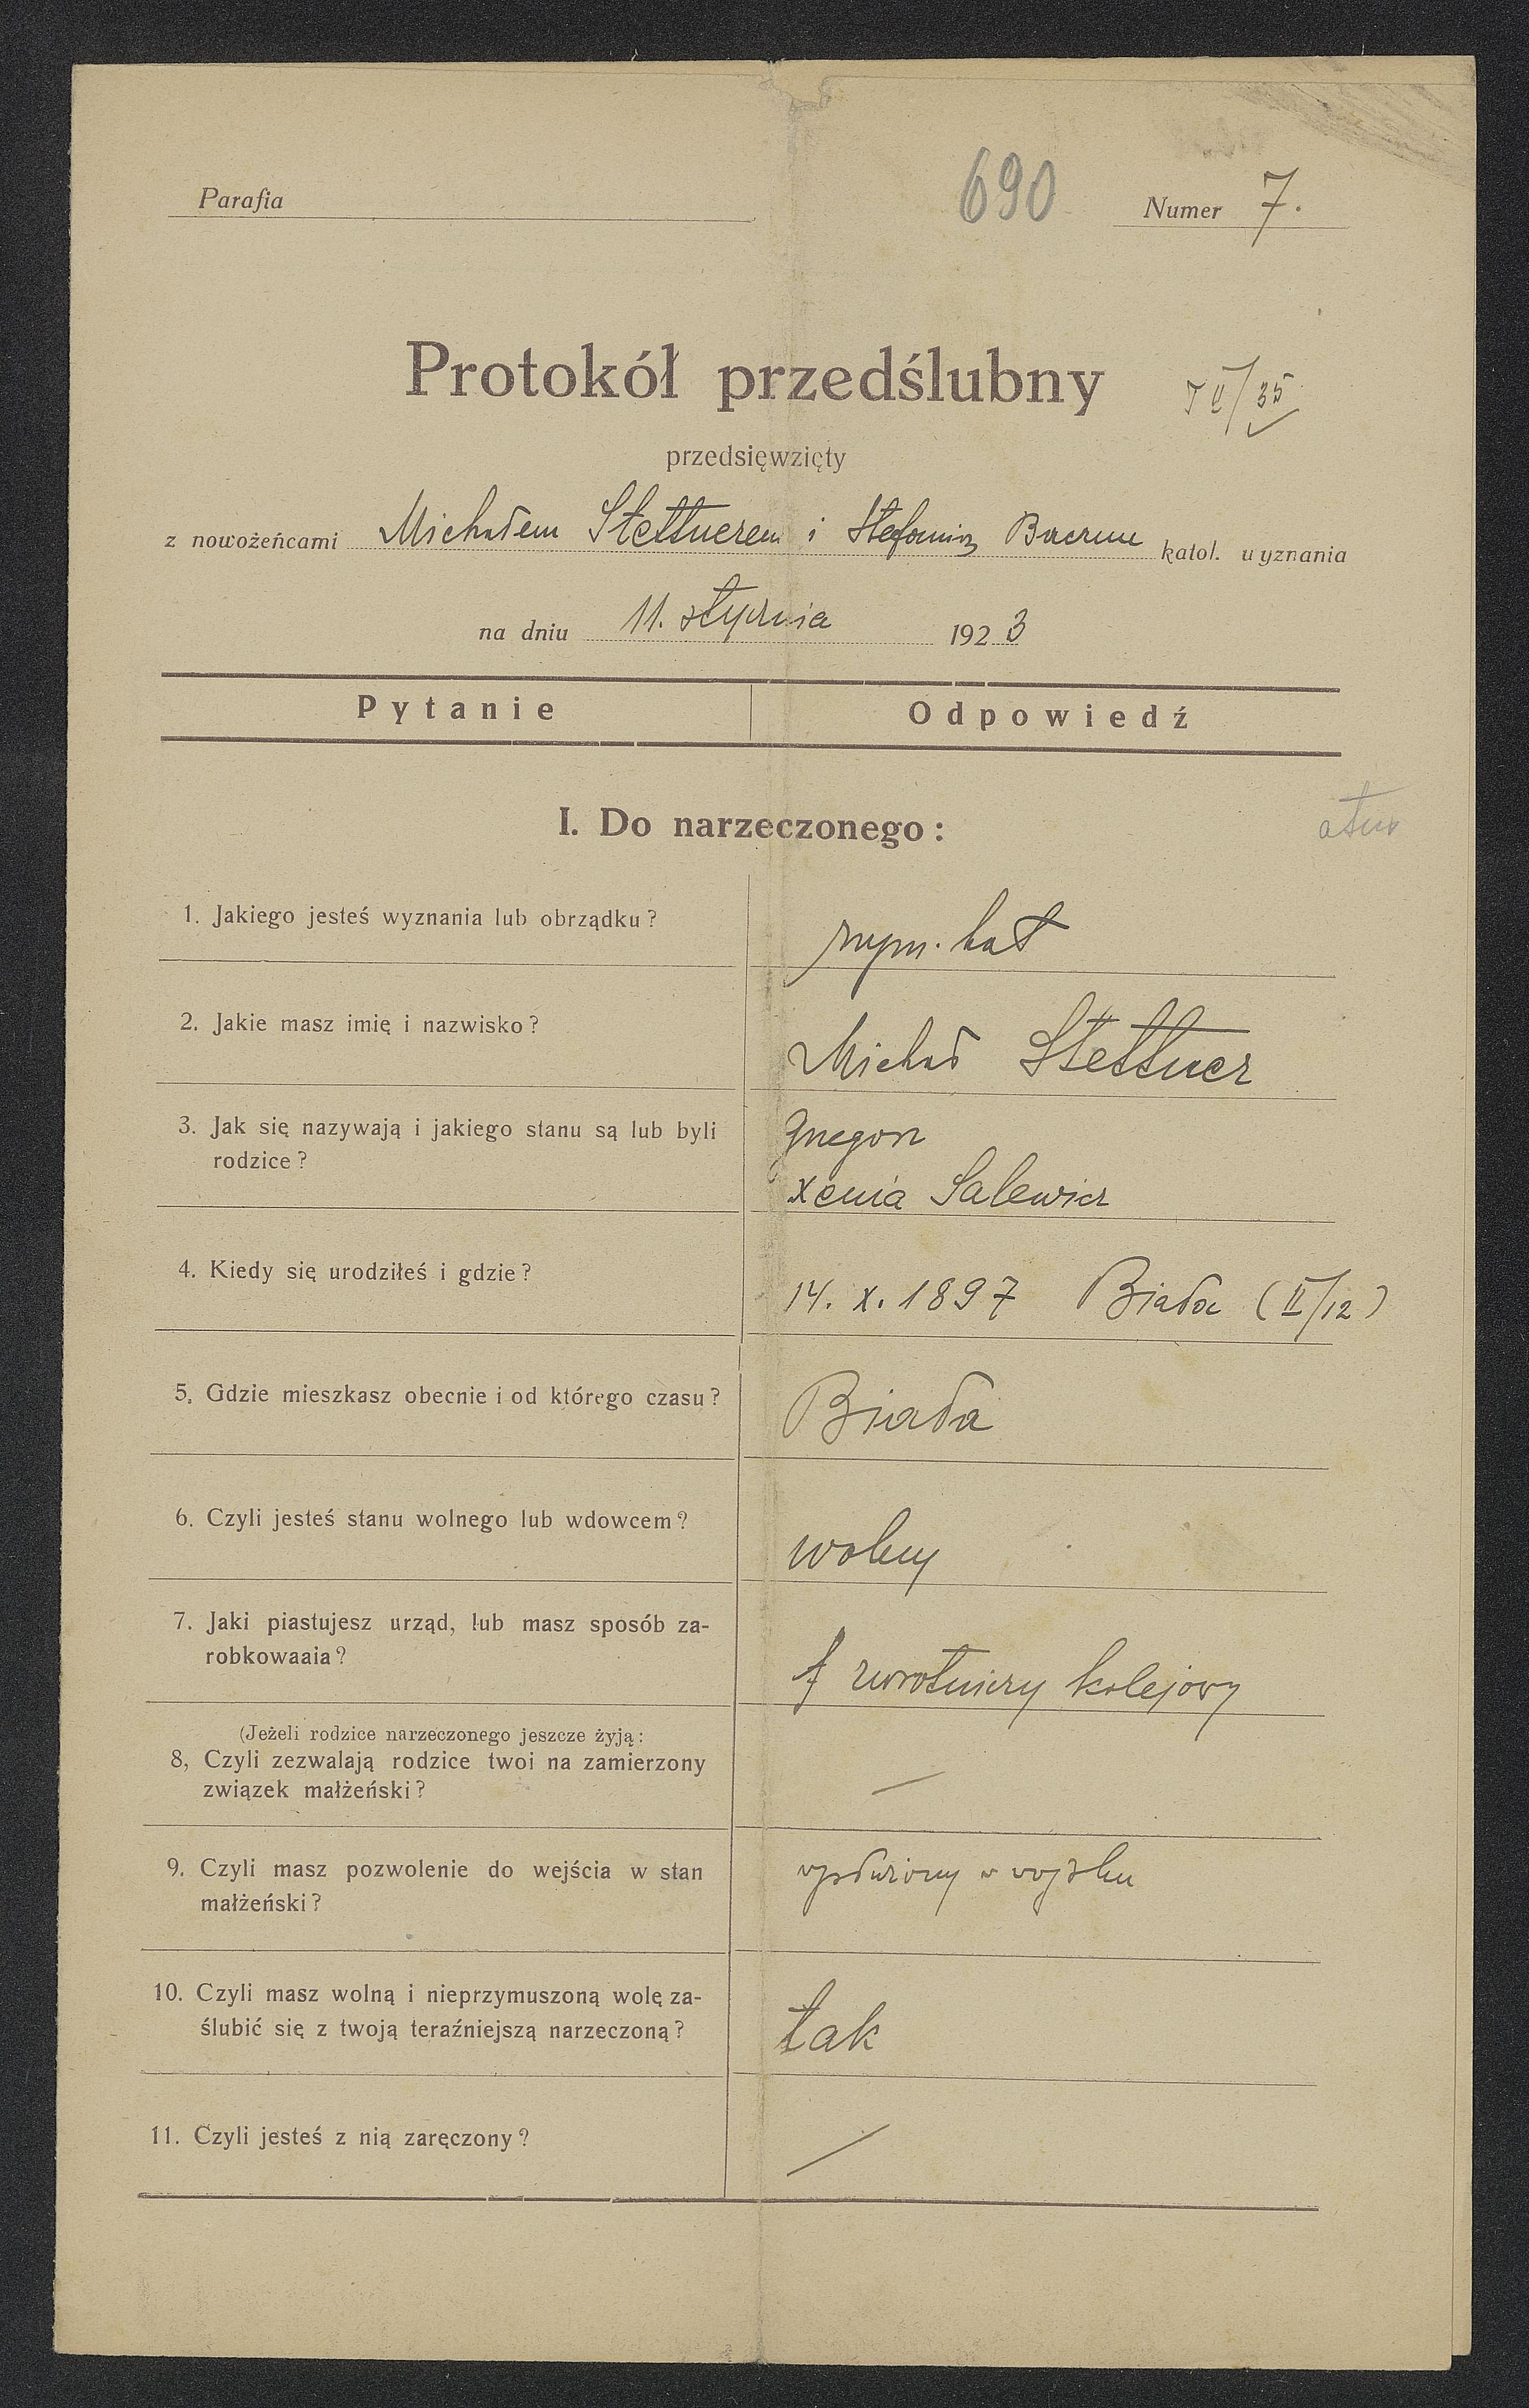 Parafia
690
Numer 7.
Protokół przedślubny
/35
przedsięwzięty
z nowożeńcami Michałem Stettnerem i Stefanią katol. wyznania
na dniu 11. stycznia 1923
Pytanie Odpowiedź
I. Do narzeczonego:
1. Jakiego jesteś wyznania lub obrządku?
rzym. kat
2. Jakie masz imię i nazwisko?
Michał Stettner
3. Jak się nazywają i jakiego stanu są lub byli
rodzice?
Grzegorz
Xenia Salewicz
4. Kiedy się urodziłeś i gdzie?
14. X. 1897 Biała (II/12)
5. Gdzie mieszkasz obecnie i od którego czasu?
Biała
6. Czyli jesteś stanu wolnego lub wdowcem?
wolny
7. Jaki piastujesz urząd, lub masz sposób za-
robkowaaia?
zwrotniczy kolejowy
(Jeżeli rodzice narzeczonego jeszcze żyją:
8, Czyli zezwalają rodzice twoi na zamierzony
związek małżeński?
—
9. Czyli masz pozwolenie do wejścia w stan
małżeński?
wysłużony w wojsku
10. Czyli masz wolną i nieprzymuszoną wolę za-
ślubić się z twoją teraźniejszą narzeczoną?
tak
11. Czyli jesteś z nią zaręczony?
—